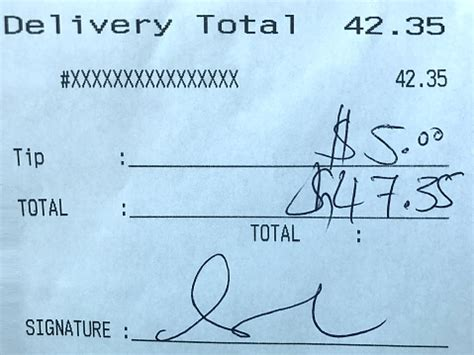 Delivery Total 42.35
#XXXXXXXXXXXXXXXX 42.35
Tip : $5.00
TOTAL : $47.35
TOTAL :
SIGNATURE :